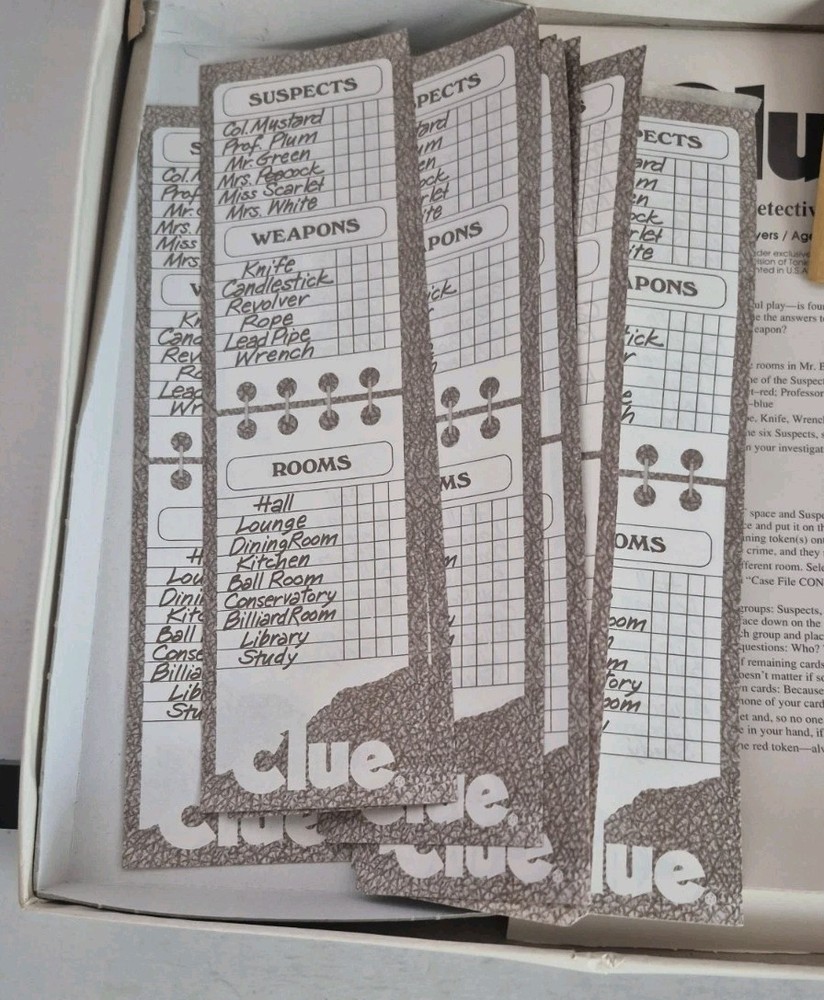 SUSPECTS
Col. Mustard
Prof. Plum
Mr. Green
Mrs. Peacock
Miss Scarlet
Mrs. White
WEAPONS
Knife
Candlestick
Revolver
Rope
Lead Pipe
Wrench
ROOMS
Hall
Lounge
Dining Room
Kitchen
Ball Room
Conservatory
Billiard Room
Library
Study
Clue
S
Col. M
Prof
Mr.
Mrs.
Miss
Mrs.
W
Kn
Cand
Rev
Ro
Lead
Wr
H
Lou
Dini
Kitc
Ball
Conse
Billia
Lib
Stu
Clue
PECTS
ard
um
en
ock
rlet
ite
PONS
ick
r
MS
m
lue.
Clue.
PECTS
ard
m
en
ock
rlet
ite
APONS
tick
r
e
h
OMS
oom
m
tory
oom
lue
lu
etectiv
yers / Age
der exclusive
ision of Ton
nted in U.S.A
ul play—is fou
e the answers t
eapon?
rooms in Mr. B
e of the Suspect
t–red; Professor
–blue
e, Knife, Wrenc
he six Suspects, s
n your investigat
space and Suspe
ce and put it on th
ining token(s) ont
crime, and they
fferent room. Sele
"Case File CON
groups: Suspects,
ace down on the
ch group and plac
questions: Who?
f remaining cards
oesn't matter if so
n cards: Because
none of your card
et and, so no one
e in your hand, if
he red token—alw